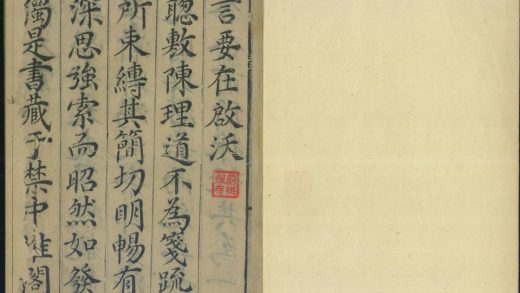 言要在啟沃
聰敷陳理道不為箋疏
所束縛其簡切明暢有
深思強索而昭然如發
獨是書藏于禁中惟閣